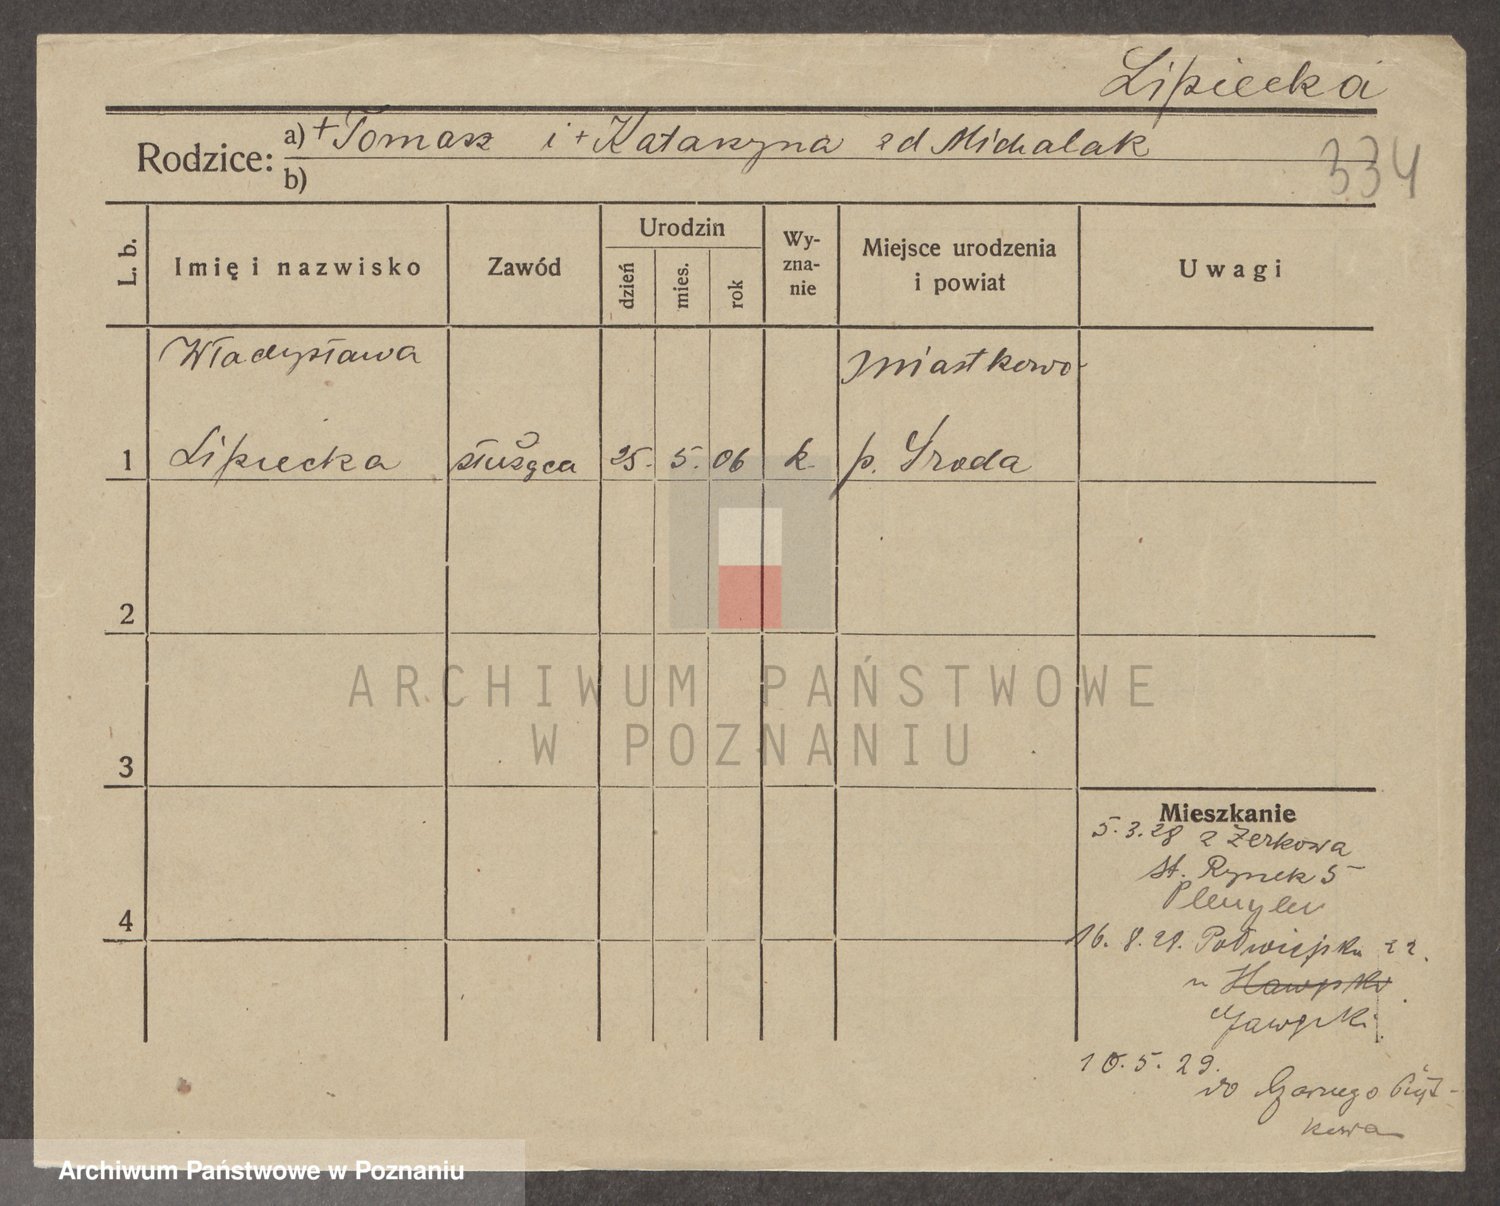 Lipiecka
Rodzice: a) + Tomasz i + Katarzyna zd Michalak
b)
334
L. b.
Imię i nazwisko
Zawód
Urodzin
dzień
mies.
rok
Wy-
zna-
nie
Miejsce urodzenia
i powiat
Uwagi
Władysława
Miastkowo
1 Lipiecka służąca 25. 5. 06 k. p. Środa
2
3
4
Mieszkanie
5.3.28 z Żerkowa
St. Rynek 5
16. 8. 28. Półwiejska 22.
Jawgski
10. 5. 29.
do Czarnego Piąt-
kowa
ARCHIWUM PAŃSTWOWE
W POZNANIU
Archiwum Państwowe w Poznaniu